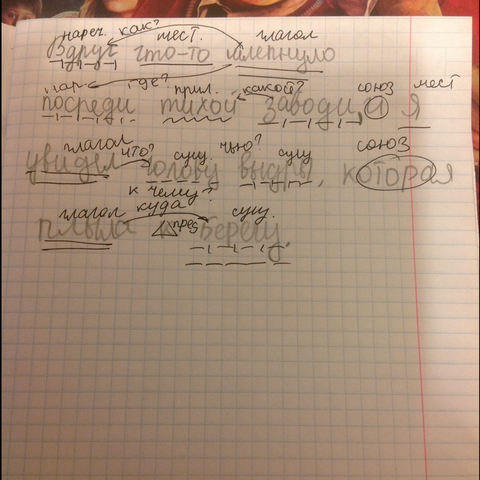 нареч. как? мест. глагол
Вдруг что-то шлепнуло
нар. где? прил. какой? союз мест
посреди тихой заводи, и я
глагол что? сущ. чью? сущ союз
увидел голову выдры, которая
к чему?
глагол куда сущ.
плыла к пред берегу.